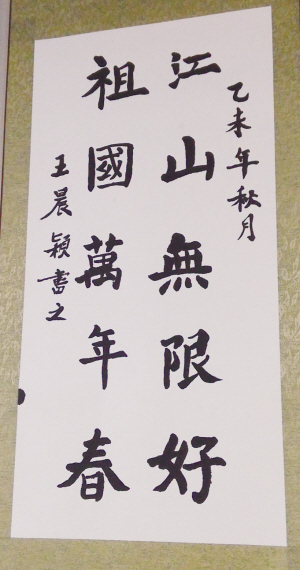 乙未年秋月
江山無限好
祖國萬年春
王晨穎書之